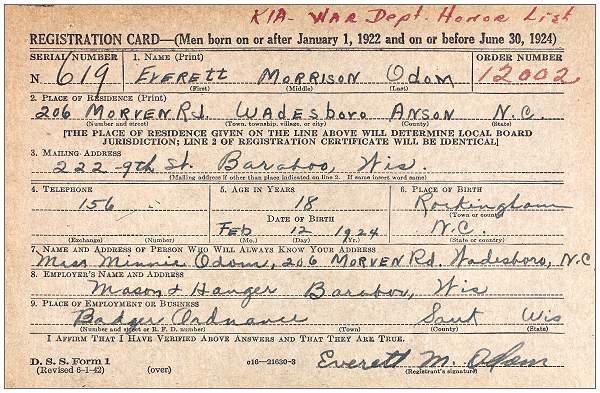 KIA - WAR Dept. Honor List
REGISTRATION CARD—(Men born on or after January 1, 1922 and on or before June 30, 1924)
SERIAL NUMBER 1. NAME (Print) ORDER NUMBER
N 619 EVERETT MORRISON ODOM 12002
(First) (Middle) (Last)
2. PLACE OF RESIDENCE (Print)
206 MORVEN Rd. WADESBORO ANSON N.C.
(Number and street) (Town, township, village, or city) (County) (State)
[THE PLACE OF RESIDENCE GIVEN ON THE LINE ABOVE WILL DETERMINE LOCAL BOARD
JURISDICTION; LINE 2 OF REGISTRATION CERTIFICATE WILL BE IDENTICAL]
3. MAILING ADDRESS
222-9th St. Baraboo, Wis
(Mailing address if other than place indicated on line 2. If same insert word same)
4. TELEPHONE 5. AGE IN YEARS 6. PLACE OF BIRTH
156 18 Rockingham
DATE OF BIRTH (Town or county)
FEB 12 1924 N.C.
(Exchange) (Number) (Mo.) (Day) (Yr.) (State or country)
7. NAME AND ADDRESS OF PERSON WHO WILL ALWAYS KNOW YOUR ADDRESS
Miss Minnie Odom, 206 MORVEN Rd. Wadesboro, N.C
8. EMPLOYER'S NAME AND ADDRESS
Mason & Hanger Baraboo, Wis
9. PLACE OF EMPLOYMENT OR BUSINESS
Badger Ordnance Wis
(Number and street or R. F. D. number) (Town) (County) (State)
I AFFIRM THAT I HAVE VERIFIED ABOVE ANSWERS AND THAT THEY ARE TRUE.
D. S. S. Form 1
(Revised 6-1-42) (over) c16—21630-3 Everett M. Odom
(Registrant's signature)